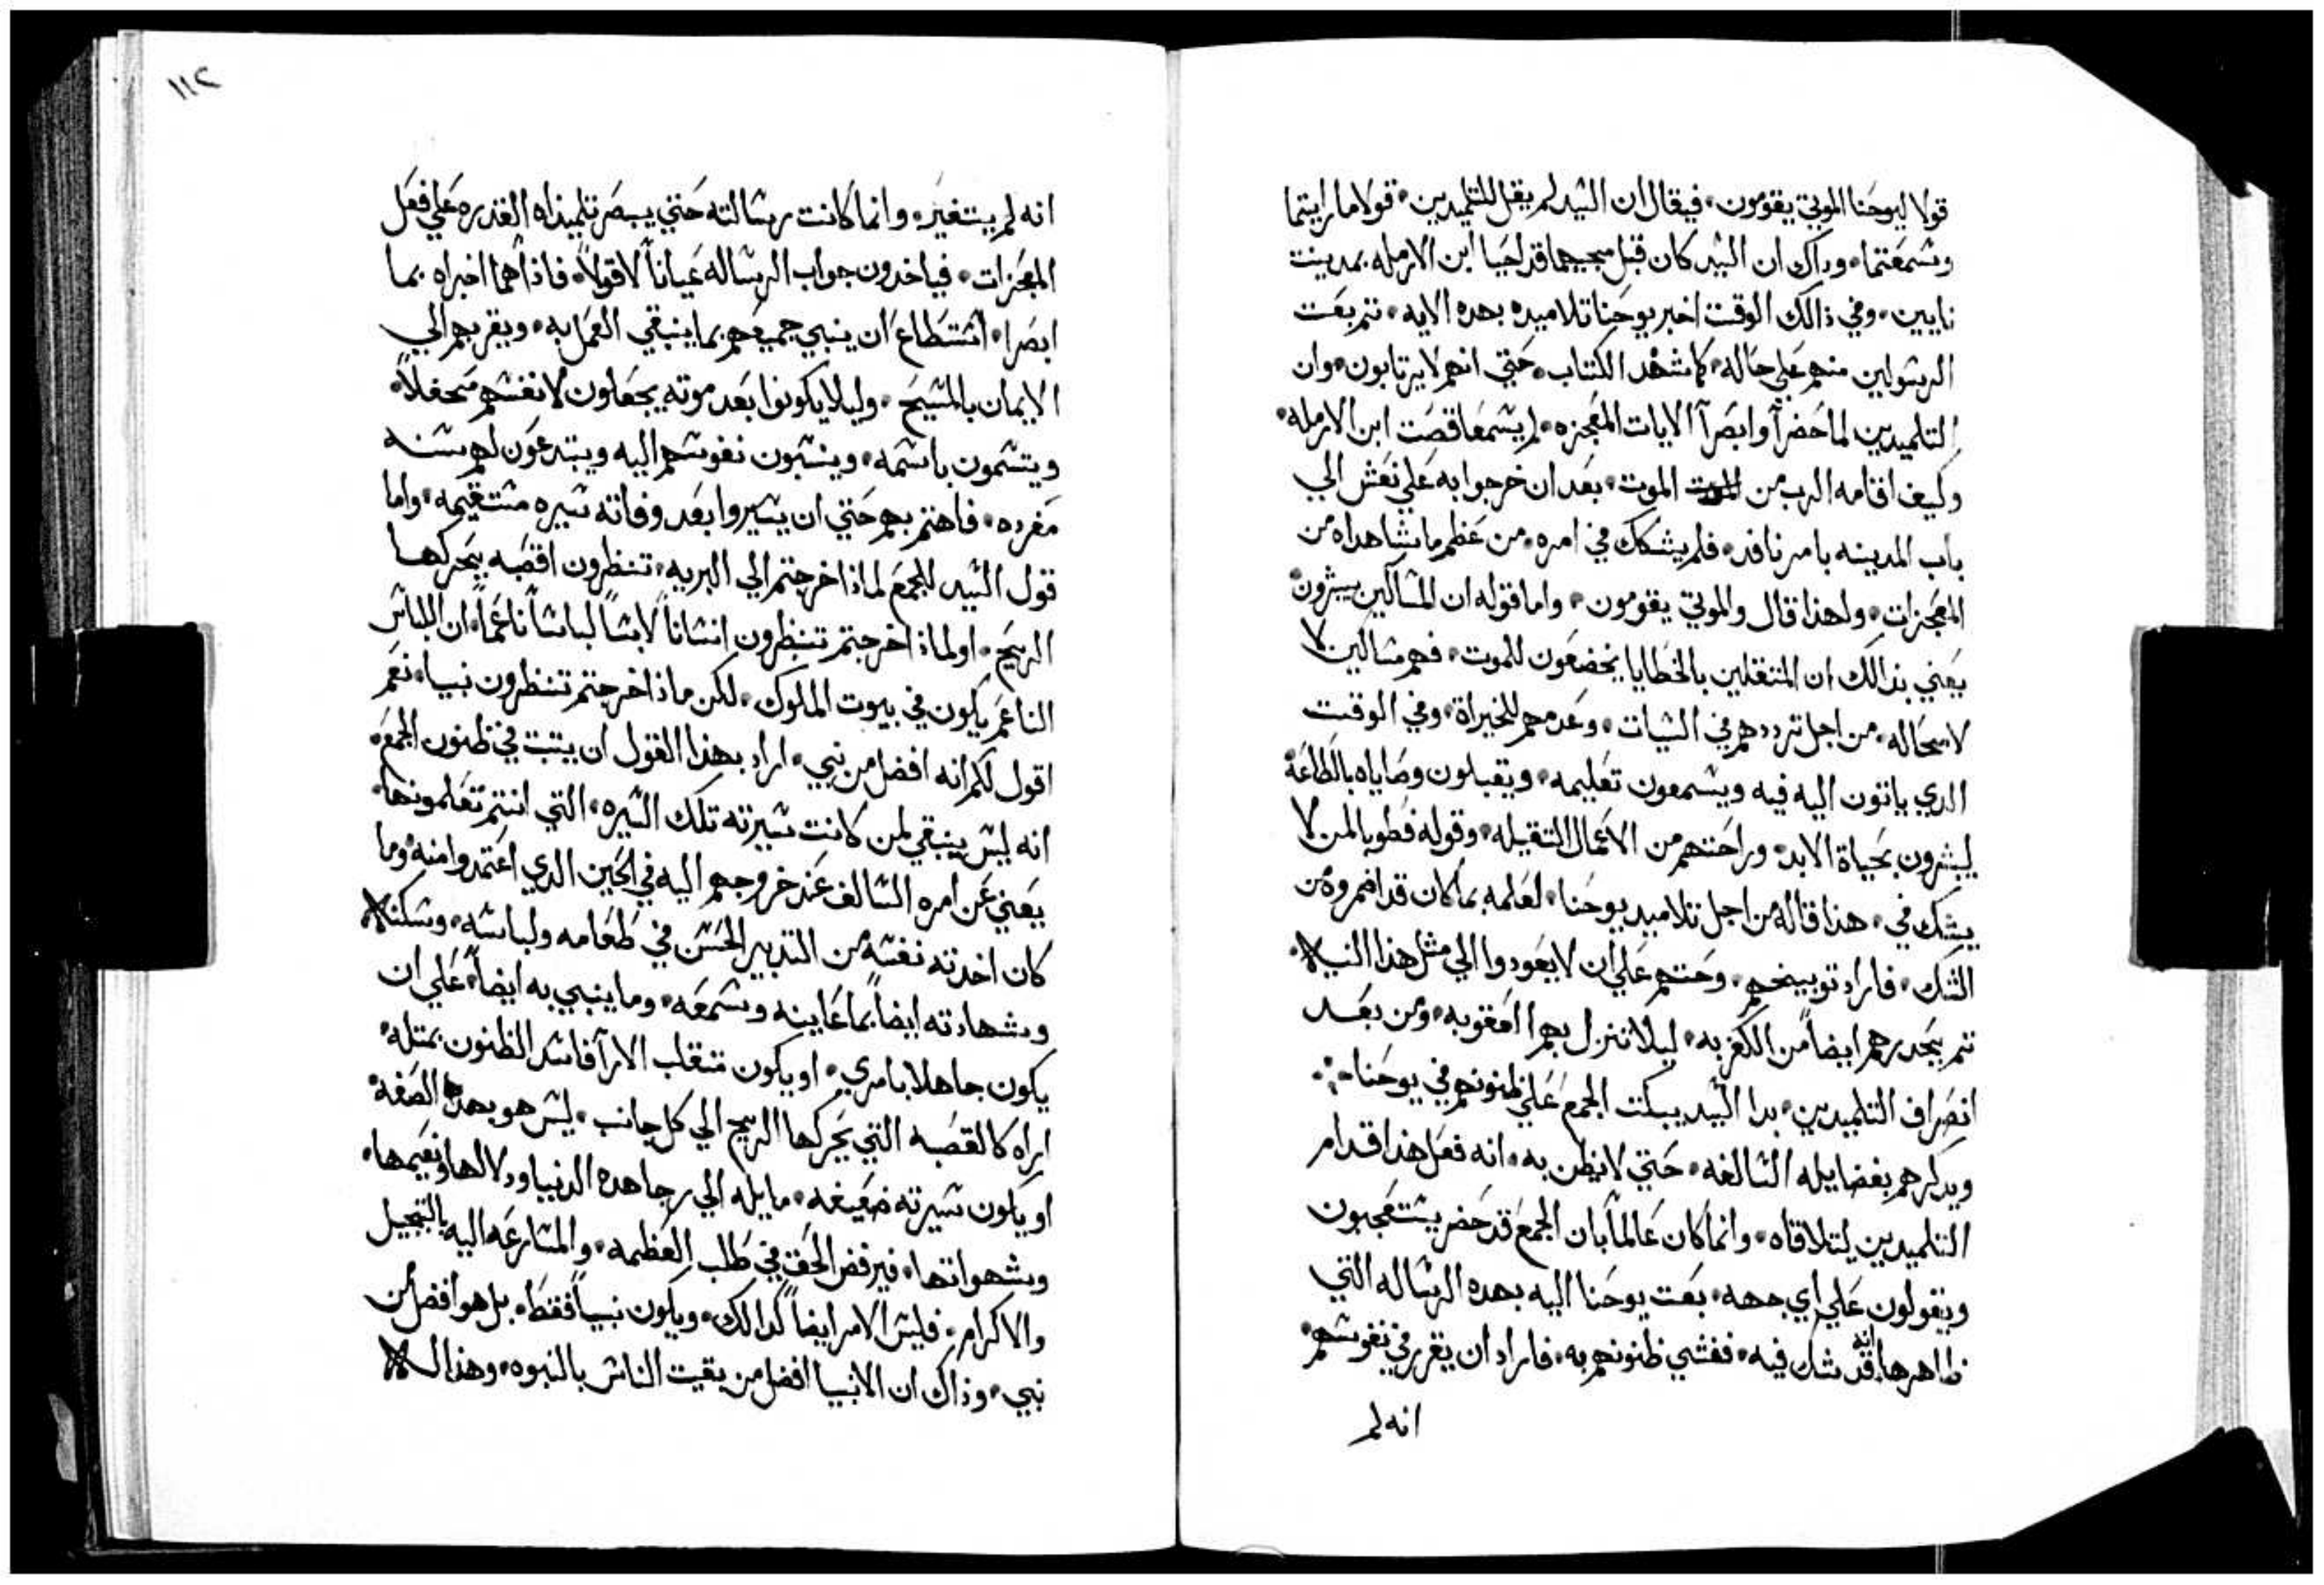 قولا ليوحنا الموتي يقومون • فيقال ان السيد لم يقل للتلميدين • قولا ما رايتما
وسمعتما • وداك ان السيد كان قبل مجيهما قد احيا ابن الارمله بمدينت
نايين • وفي ذالك الوقت اخبر يوحنا تلاميده بهده الايه • تم بعت
الرسولين منهم علي حاله • كما شهد الكتاب • حتي انهم لا يرتابون • وان
التلميدين لما حضرآ وابصرآ الايات المعجزه • لم يسمعا قصت ابن الارمله •
وكيف اقامه الرب من الموت • بعد ان خرجوا به علي نعش الي
باب المدينه بامر نافد • فلم يشكك في امره • من عظم ما شاهداه من
المعجزات • ولهذا قال والموتي يقومون • واما قوله ان المساكين يبشرون
يعني بذالك ان المتتقلين بالخطايا يخضعون للموت • فهم مساكين لا
لامحاله • من اجل ترددهم في السيات • وعدمهم للخيراة • وفي الوقت
الدي ياتون اليه فيه ويسمعون تعليمه • ويقبلون وصاياه بالطاعة
يبشرون بحياة الابد • وراحتهم من الاعمال التقيله • وقوله فطوبا لمن لا
يشك في • هذا قاله من اجل تلاميد يوحنا • لعلمه بما كان قد اضمروه من
الشك • فاراد توبيخهم • وحتهم علي ان لا يعودوا الي مثل هذا النيه •
تم يحدرهم ايضاً من الكفر به • ليلا تنزل بهم العقوبه • ومن بعد
انصراف التلميدين • بدا السيد يبكت الجمع علي ظنونهم في يوحنا
ويدكرهم بفضايله السالفه • حتي لا يظن به • انه فعل هذا قدام
التلميدين لتلاقاه • وانما كان عالماً بان الجمع قد حضر يستعجبون
ويقولون علي اي جهه • بعت يوحنا اليه بهده الرساله التي
ظاهرها انه قد شك فيه • ففشي ظنونهم به • فاراد ان يقرر في نفوسهم •
انه لم
١١٢
انه لم يتغير • وانما كانت رسالته حتي يبصر تلميذاه القدره علي فعل
المعجزات • فياخدون جواب الرساله عياناً لا قولاً • فاذا هما اخبراه بما
ابصرا • استطاع ان ينبي جميعهم بما ينبغي العمل به • ويقربهم الي
الايمان بالمسيح • وليلا يكونوا بعد موته يجعلون لانفسهم محفلاً •
ويتسمون باسمه • وينسبون نفوسهم اليه ويبتدعون لهم سنه
مفرده • فاهتم بهم حتي ان يسيروا بعد وفاته سيره مستقيمه • واما
قول السيد للجمع لماذا خرجتم الي البريه • تنظرون اقصبه يحركها
الريح • او لماذا خرجتم تنظرون انساناً لابساً لباساً ناعماً • ان اللباس
الناعم يكون في بيوت الملوك • لكن ماذا خرجتم تنظرون نبيا • نعم
اقول لكم انه افضل من نبي • اراد بهذا القول ان يتبت في ظنون الجمع •
انه ليس ينبغي لمن كانت سيرته تلك السيره • التي انتم تعلمونها •
يعني عن امره السالف عند خروجهم اليه في الحين الدي اعتمدوا منه • وما
كان اخدته نفسه من التدبير الحسن في طعامه ولباسه • وسكناه
وشهادته ايضاً بما عاينه وسمعه • وما ينبي به ايضاً • علي ان
يكون جاهلا بامري • او يكون متقلب الارآ فاسد الظنون بمتله •
اراه كالقصبه التي يحركها الريح الي كل جانب • ليس هو بهده الصفه •
او يكون سيرته ضعيفه • مايله الي رجا هده الدنيا ودلالها ونعيمها •
وشهواتها • فيرفض الحق في طلب العظمه • والمسارعه اليه بالتبجيل
والاكرام • فليس الامر ايضاً كدالك • ويكون نبياً فقط • بل هو افضل من
نبي • وذاك ان الانبيا افضل من بقيت الناس بالنبوه • وهذا